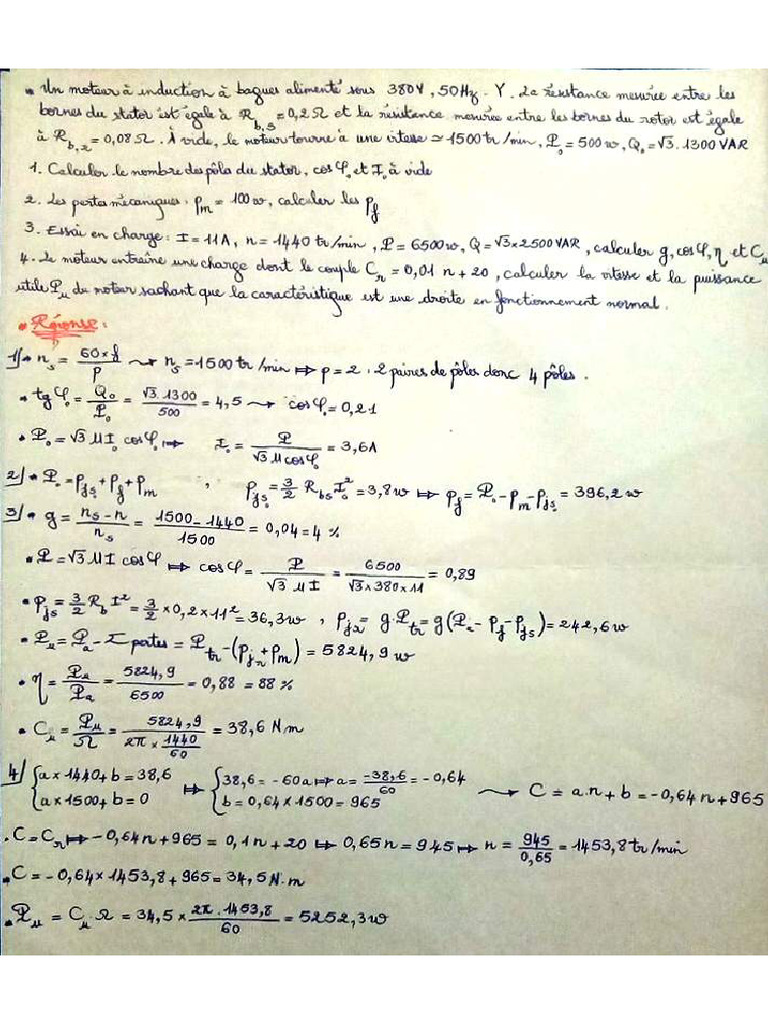 • Un moteur à induction à bagues alimenté sous 380V, 50Hz - Y. La résistance mesurée entre les
bornes du stator est égale à R_{b,s} = 0,2Ω et la résistance mesurée entre les bornes du rotor est égale
à R_{b,2} = 0,08Ω. À vide, le moteur tourne à une vitesse ≃ 1500 tr/min, P₀ = 500w, Q₀ = √3.1300 VAR
1. Calculer le nombre des pôles du stator, cos φ₀ et I₀ à vide
2. Les pertes mécaniques: p_m = 100w, calculer les p_f
3. Essai en charge: I = 11A, n = 1440 tr/min, P = 6500w, Q = √3×2500 VAR, calculer g, cos φ, η et C_u
4. Le moteur entraîne une charge dont le couple C_r = 0,01 n + 20, calculer la vitesse et la puissance
utile P_u du moteur sachant que la caractéristique est une droite en fonctionnement normal.
• Réponse:
1) • n_s = 60×f/p ⇝ n_s = 1500 tr/min ↦ p = 2. 2 paires de pôles donc 4 pôles.
• tg φ₀ = Q₀/P₀ = √3.1300/500 = 4,5 ⇝ cos φ₀ = 0,21
• P₀ = √3 U I₀ cos φ₀ ↦ I₀ = P/(√3 U cos φ₀) = 3,6A
2) • P₀ = p_{js₀} + p_f + p_m , p_{js₀} = 3/2 R_{bs} I₀² = 3,8w ↦ p_f = P₀ - p_m - p_{js₀} = 396,2w
3) • g = (n_s - n)/n_s = (1500 - 1440)/1500 = 0,04 = 4 %
• P = √3 U I cos φ ↦ cos φ = P/(√3 U I) = 6500/(√3×380×11) = 0,89
• p_{js} = 3/2 R_b I² = 3/2 × 0,2 × 11² = 36,3w , p_{jr} = g.P_{tr} = g(P_a - p_f - p_{js}) = 242,6w
• P_u = P_a - Σ pertes = P_{tr} - (p_{jr} + p_m) = 5824,9w
• η = P_u/P_a = 5824,9/6500 = 0,88 = 88 %
• C_u = P_u/Ω = 5824,9/(2π × 1440/60) = 38,6 N.m
4) { a×1440+b = 38,6 ↦ { 38,6 = -60a ↦ a = -38,6/60 = -0,64
{ a×1500+b = 0 { b = 0,64×1500 = 965 ⇝ C = a.n + b = -0,64n + 965
• C = C_r ↦ -0,64n + 965 = 0,1n + 20 ↦ 0,65n = 945 ↦ n = 945/0,65 = 1453,8 tr/min
• C = -0,64×1453,8 + 965 = 34,5 N.m
• P_u = C_u.Ω = 34,5 × 2π.1453,8/60 = 5252,3w